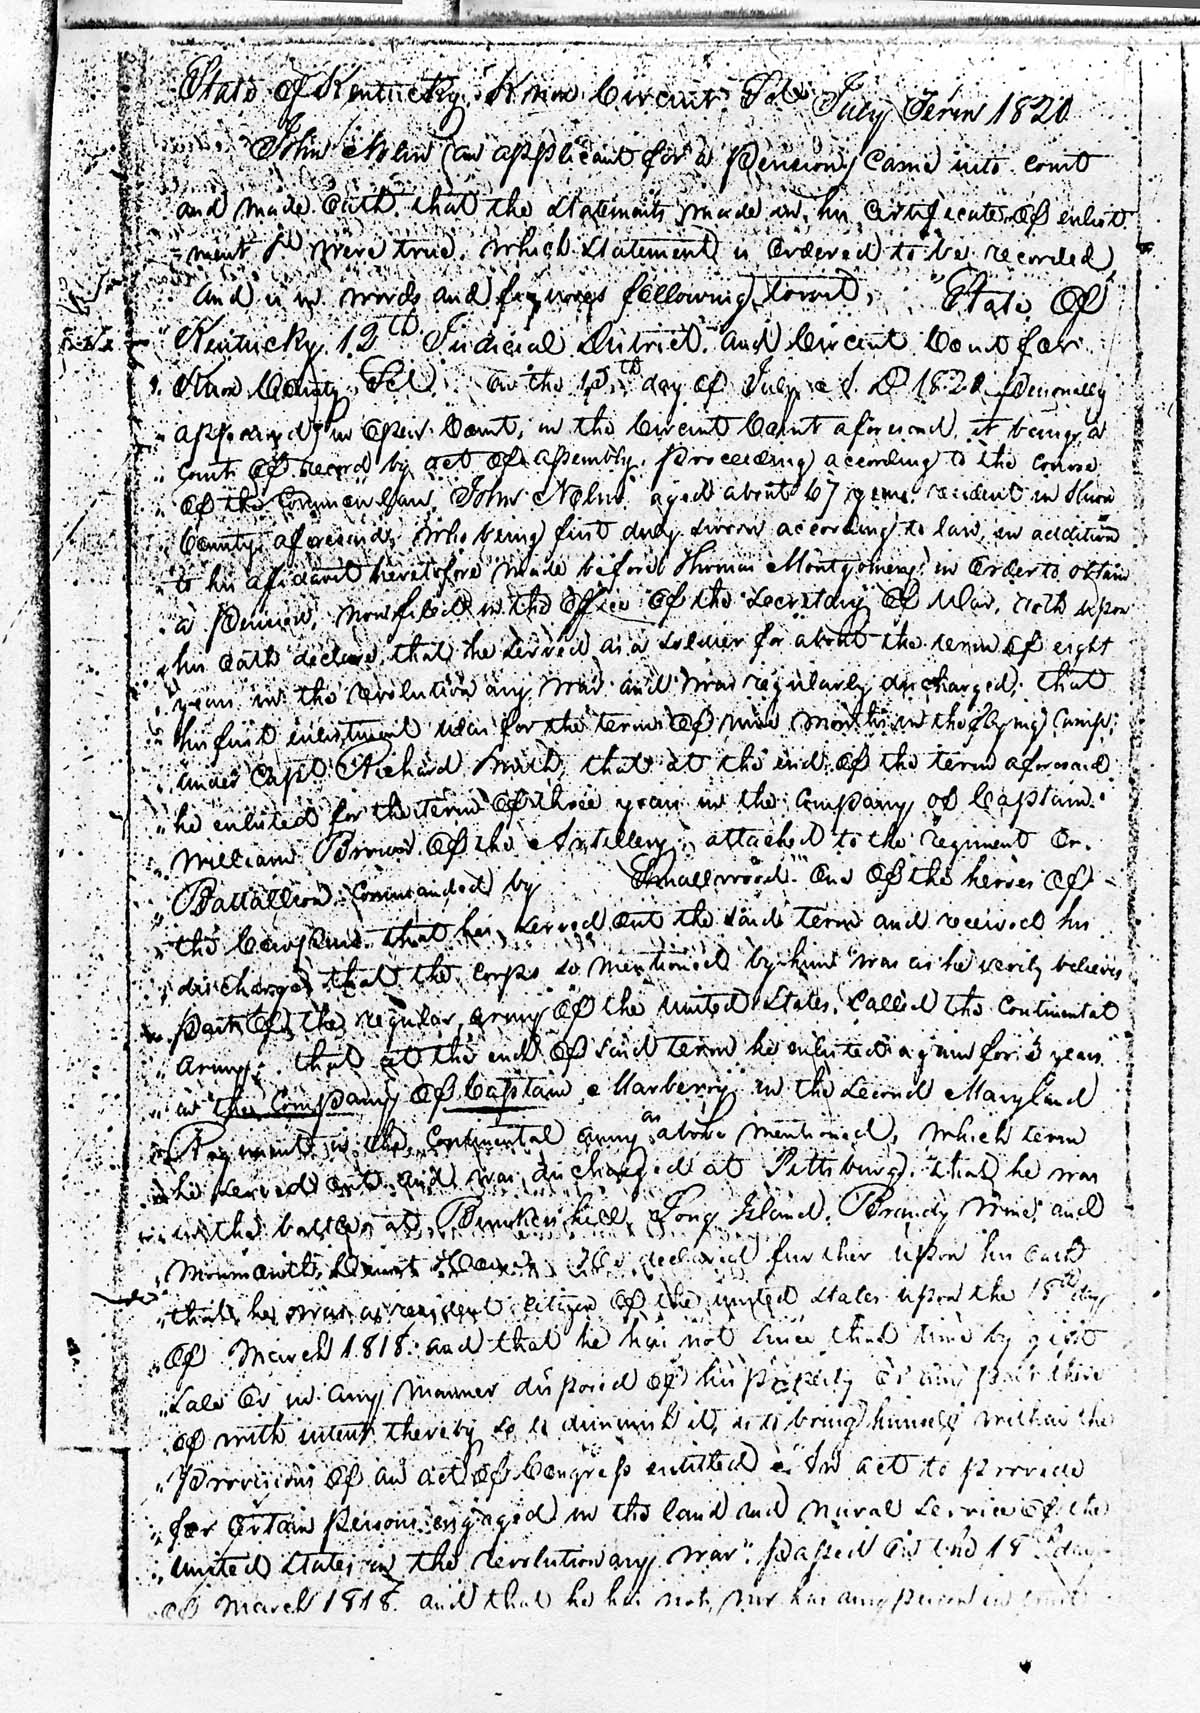 State of Kentucky, Knox Circuit Sct July Term 1820
John Nolin (an applicant for a Pension) came into court
and made oath that the statements made in his Certificate of enlist
ment &c were true, which statement is ordered to be recorded
and is in words and figures following towit, State of
Kentucky 12th Judicial District and Circuit Court for
Knox County Sct. on the 15th day of July A D 1820 personally
appeared in open Court, in the Circuit Court aforesaid, it being a
Court of record by act of assembly, proceeding according to the course
of the Common law, John Nolin aged about 67 years resident in Knox
County aforesaid, who being first duly sworn according to law, in addition
to his afidavit heretofore made before Thomas Montgomery in order to obtain
a pension, now filed in the office of the Secretary of War, doth upon
his oath declare that he served as a soldier for about the term of eight
years in the revolutionary war and was regularly discharged, that
his first enlistment was for the term of nine months in the flying Camp,
under Capt. Richard Smith, that at the end of the term aforesaid
he enlisted for the term of three years in the Company of Captain
William Brown of the Artillery, attached to the regiment or
Battallion Commanded by Smallwood one of the heroes of
the Cowpens that he served out the said term and received his
discharge that the corps so mentioned by him was as he verily believes
part of the regular army of the united States, Called the Continental
army, that at the end of said term he enlisted again for 3 years
in the Company of Captain Marberry in the Second Maryland
Regiment in the Continental army as above mentioned, which term
he served out and was discharged at Pittsburg. that he was
in the battles at Bunkers hill, Long Island, Brandy Wine, and
Monmouth Court House He declared further upon his oath
that he was a resident citizen of the united States upon the 18th day
of March 1818. and that he has not since that time by gift
sale or in any manner disposed of his property or any part there
of with intent thereby so to diminish it, as to bring himself within the
provisions of an act of Congress entitled "An act to provide
for certain persons engaged in the land and naval service of the
united States in the revolutionary war" passed on the 18th day
of March 1818. and that he has not, nor has any person in trust